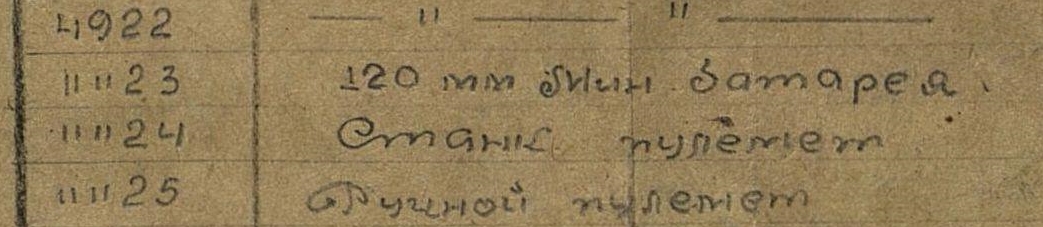 4922 — " — " —
" " 23 120 мм Мин. батарея.
" " 24 Станк. пулемет
" " 25 Ручной пулемет